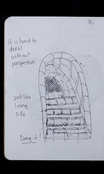 It is hard to
draw
without
perspective
just like
living
life
Dang it!